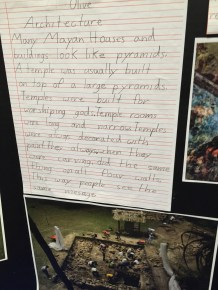 Olive
Architecture
Many Mayan Houses and
buildings look like pyramids.
A temple was usually built
on top of a large pyramids
Temples were built for
worshiping gods, temple rooms
was long and narrow, temples
was also decorated with
they
the same
wall
this way people see the
same